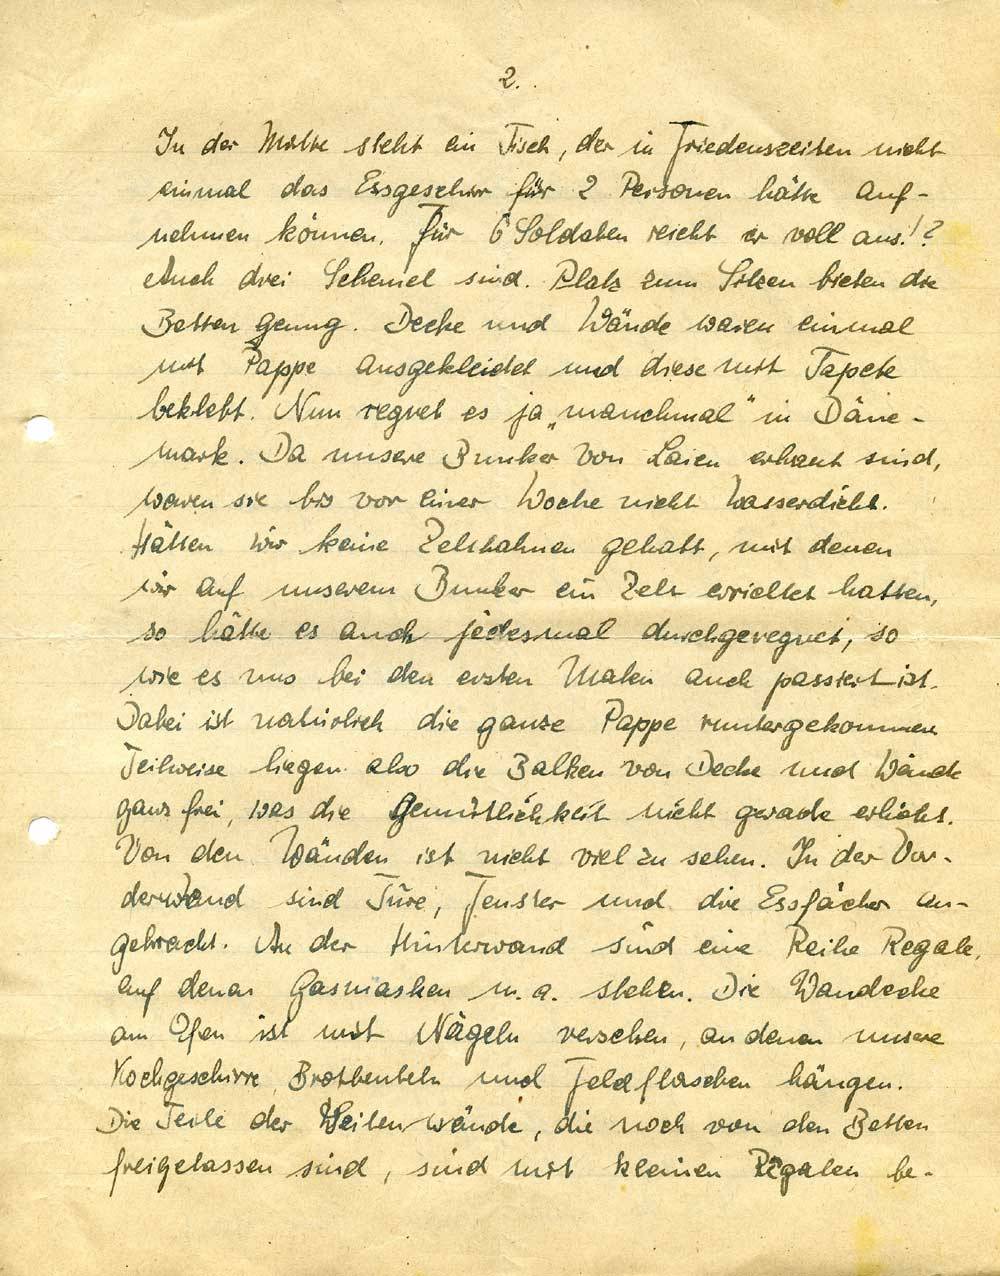 2.
In der Mitte steht ein Tisch, der in Friedenszeiten nicht
einmal das Essgeschirr für 2 Personen hätte auf-
nehmen können. Für 6 Soldaten reicht er voll aus!?
Auch drei Schemel sind. Platz zum Sitzen bieten die
Betten genug. Decke und Wände waren einmal
mit Pappe ausgekleidet und diese mit Tapete
beklebt. Nun regnet es ja „manchmal“ in Däne-
mark. Da unsere Bunker von Laien erbaut sind,
waren sie bis vor einer Woche nicht wasserdicht.
Hätten wir keine Zeltbahnen gehabt, mit denen
wir auf unserem Bunker ein Zelt errichtet hatten,
so hätte es auch jedesmal durchgeregnet, so
wie es uns bei den ersten Malen auch passiert ist.
Dabei ist natürlich die ganze Pappe runtergekommen
Teilweise liegen also die Balken von Decke und Wände
ganz frei, was die Gemütlichkeit nicht gerade erhöht.
Von den Wänden ist nicht viel zu sehen. In der Vor-
derwand sind Türe, Fenster und die Essfächer an-
gebracht. An der Hinterwand sind eine Reihe Regale,
auf denen Gasmasken u. a. stehen. Die Wandecke
am Ofen ist mit Nägeln versehen, an denen unsere
Kochgeschirre, Brotbeuteln und Feldflaschen hängen.
Die Teile der Seitenwände, die noch von den Betten
freigelassen sind, sind mit kleinen Regalen be-